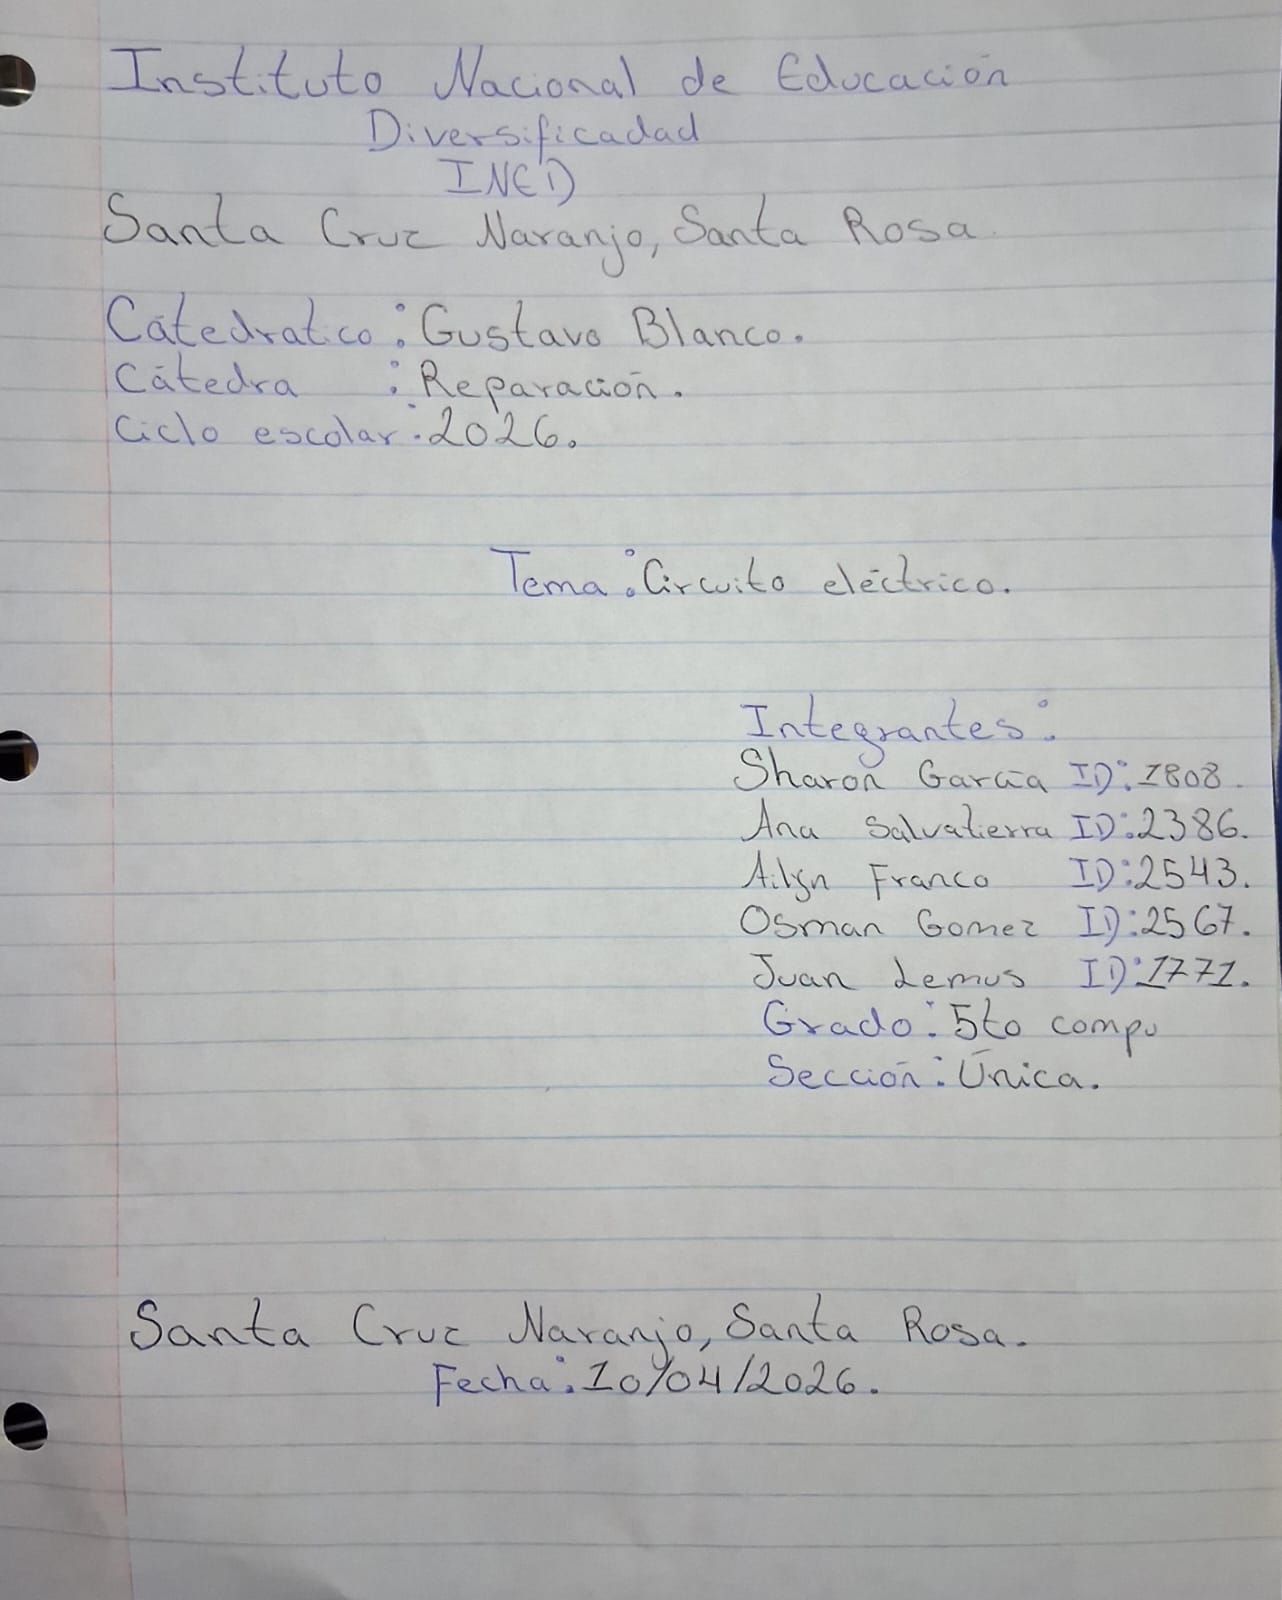 Instituto Nacional de Educación
Diversificadad
INED
Santa Cruz Naranjo, Santa Rosa.
Cátedratico: Gustavo Blanco.
Cátedra : Reparación.
Ciclo escolar: 2026.
Tema: Circuito eléctrico.
Integrantes:
Sharon García ID: 1808.
Ana Salvatierra ID: 2386.
Ailyn Franco ID: 2543.
Osman Gomez ID: 2567.
Juan Lemus ID: 1771.
Grado: 5to compu
Sección: Única.
Santa Cruz Naranjo, Santa Rosa.
Fecha: 10/04/2026.